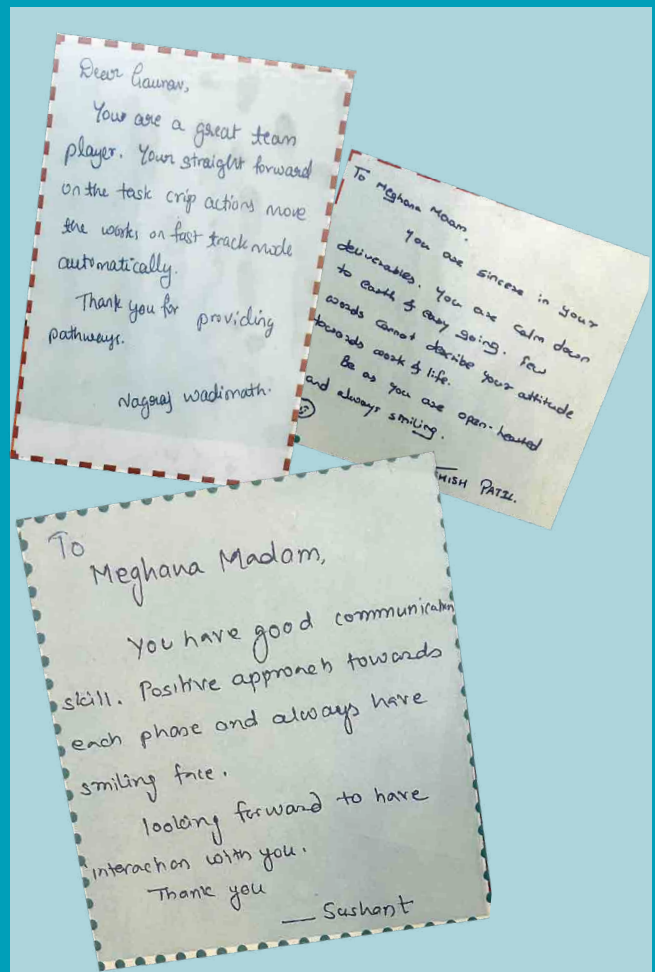 Dear Gaurav,
You are a great team
player. Your straight forward
on the task crip actions move
the works on fast track mode
automatically.
Thank you for providing
pathways.
Nagraj Wadimath.
To Meghana Maam.
You are sincere in your
deliverables. You are calm down
to earth & easy going. Few
words cannot describe your attitude
towards work & life.
Be as you are open-hearted
and always smiling.
HISH PATIL.
To
Meghana Madam,
You have good communication
skill. Positive approach towards
each phase and always have
smiling face.
looking forward to have
interaction with you.
Thank you
— Sushant